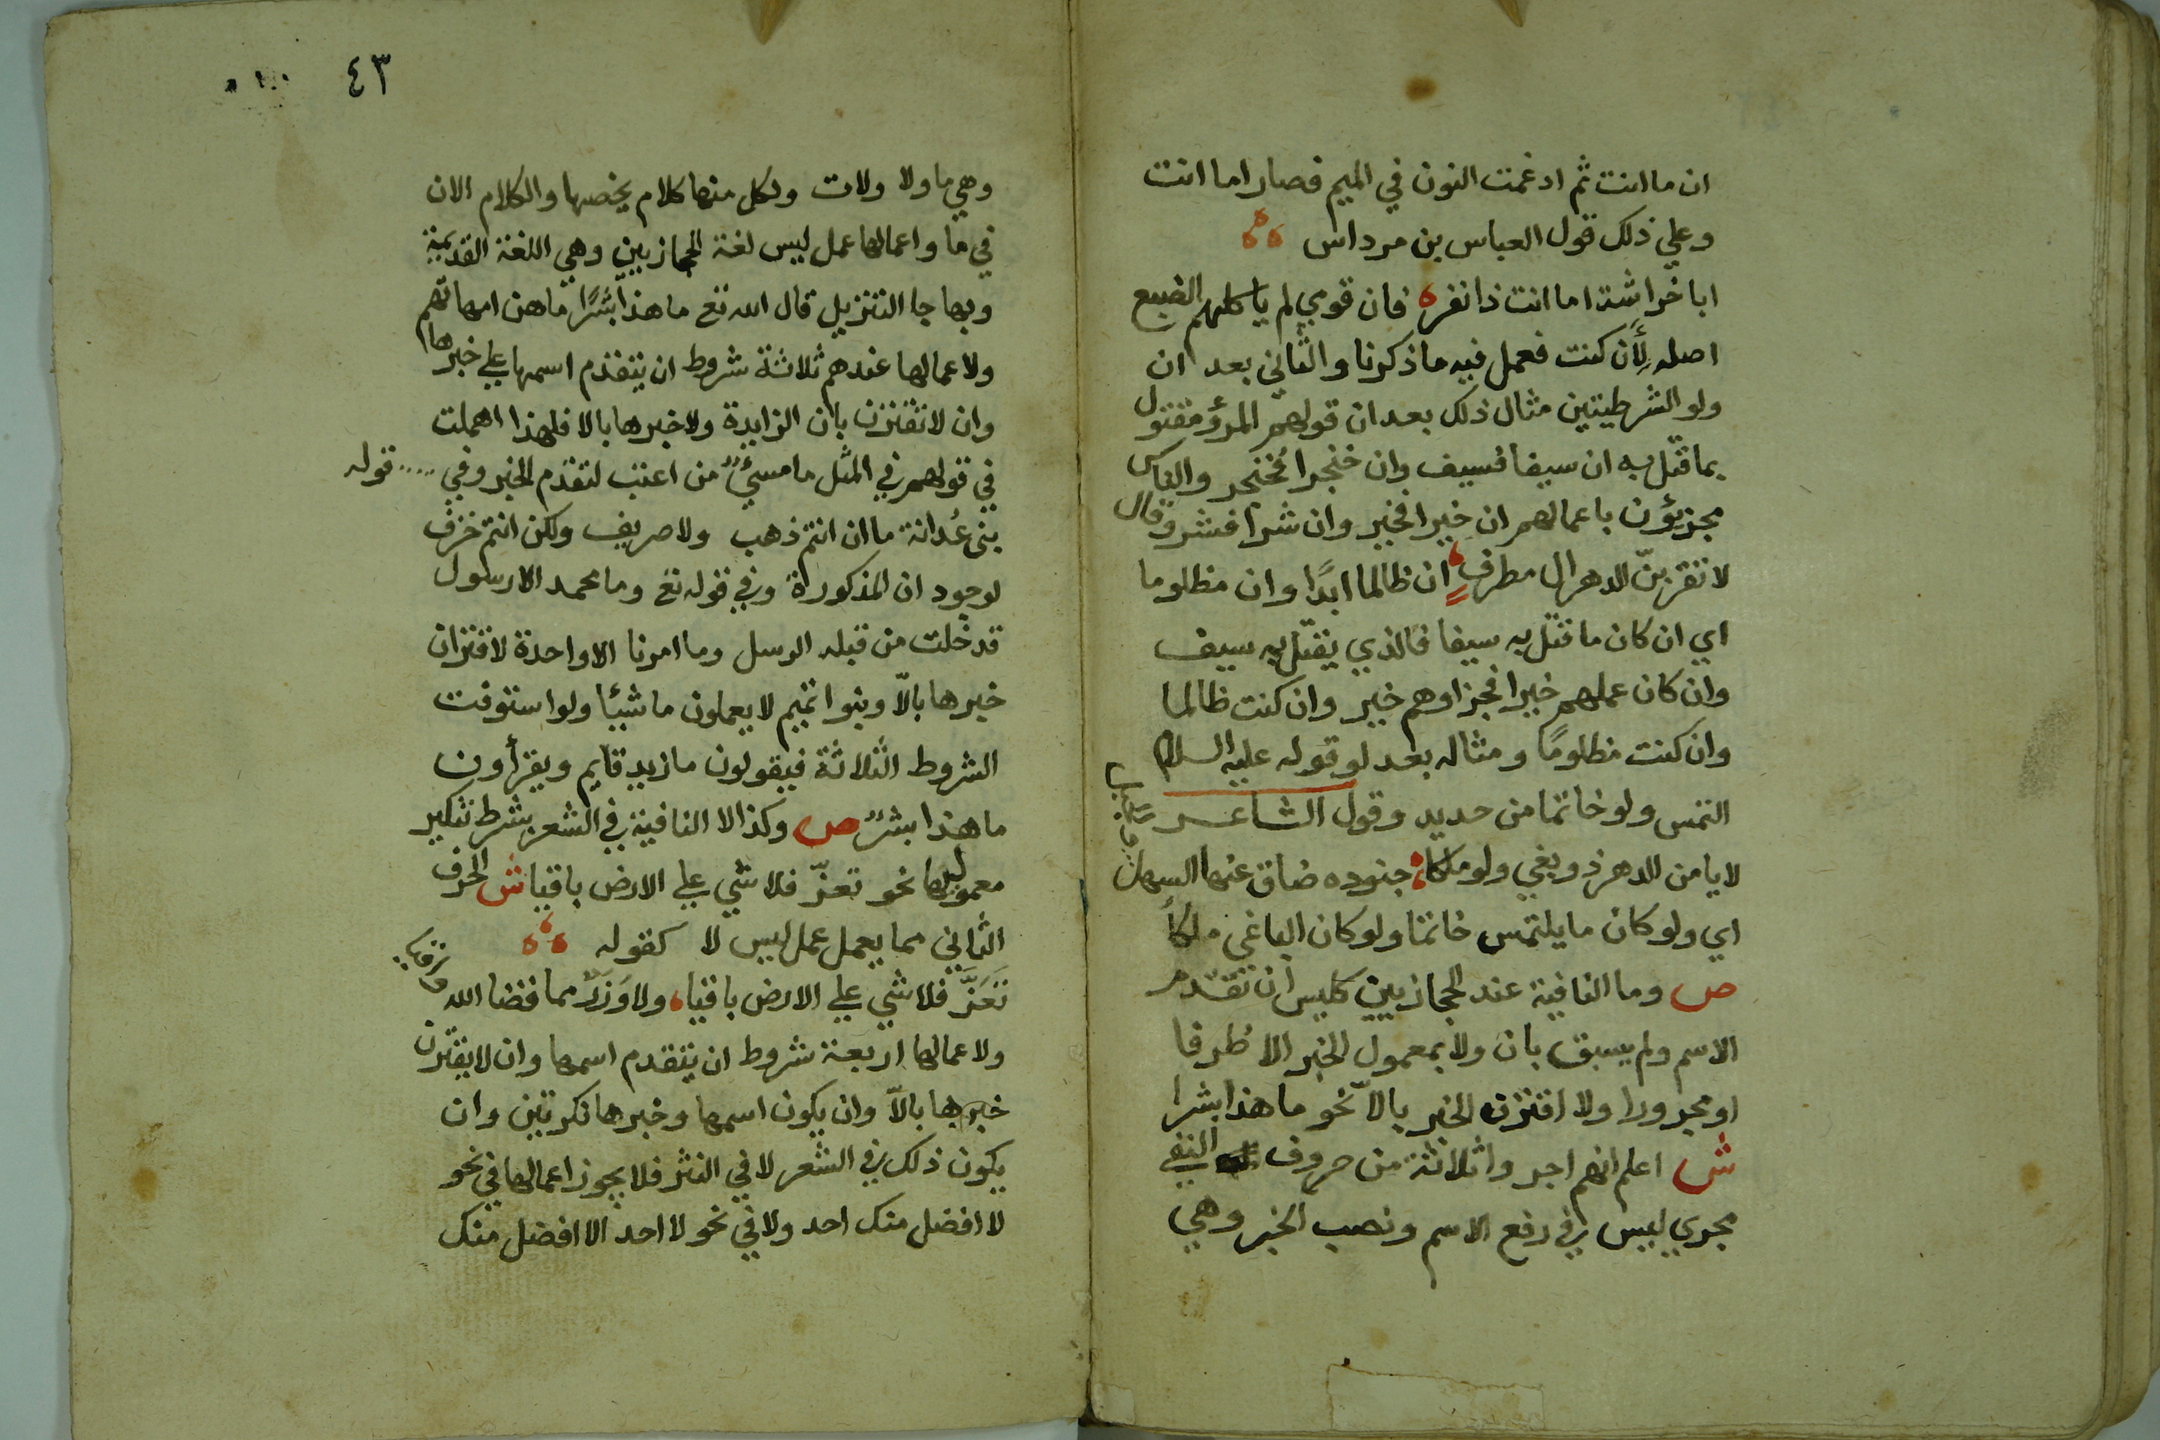 ان ما انت ثم ادغمت النون في الميم فصار اما انت
وعلي ذلك قول العباس بن مرداس
ابا خراشة اما انت ذا نفر فان قومي لم ياكلهم الضبع
اصله لِأَن كنت فعمل فيه ما ذكرنا والثاني بعد ان
ولو الشرطيتين مثال ذلك بعد ان قولهم المرؤ مقتول
بما قتل به ان سيفا فسيف وان خنجرا فخنجر والناس
مجزيؤن باعمالهم ان خيرا فخير وان شرا فشر وقال
لا تقربنّ الدهر ال مطرفٍ ان ظالما ابدًا وان مظلوما
اي ان كان ما قتل به سيفا فالذي يقتل به سيف
وان كان عملهم خيرا فجزاوهم خير وان كنت ظالما
وان كنت مظلومًا ومثاله بعد لو قوله عليه السلام
التمس ولو خاتما من حديد وقول الشاعر
لا يامن الدهر ذو بغي ولو ملكا جنوده ضاق عنها السهل
اي ولو كان ما يلتمس خاتما ولو كان الباغي ملكاً
ص وما النافية عند الحجازيين كليس ان تقدم
الاسم ولم يسبق بان ولا بمعمول الخبر الا ظرفا
او مجرورا ولا اقترن الخبر بالاّ نحو ما هذا بشرا
ش اعلم انهم اجروا ثلاثة من حروف النفي
مجري ليس في رفع الاسم ونصب الخبر وهي
٤٣
وهي ما ولا ولات ولكل منها كلام يخصها والكلام الان
في ما واعمالها عمل ليس لغة الحجازيين وهي اللغة القديمة
وبها جا التنزيل قال الله تع ما هذا بشرًا ما هن امهاتهم
ولاعمالها عندهم ثلاثة شروط ان يتقدم اسمها علي خبرها
وان لا تقترن بان الزايدة ولا خبرها بالا فلهذا اهملت
في قولهم في المثل ما مسيئٌ من اعتب لتقدم الخبر وفي قوله
بني غُدانة ما ان انتم ذهب ولا صريف ولكن انتم خزف
لوجود ان المذكورة وفي قوله تع وما محمد الا رسول
قد خلت من قبله الرسل وما امرنا الا واحدة لاقتران
خبرها بالاّ وبنوا تميم لا يعملون ما شيئا ولو استوفت
الشروط الثلاثة فيقولون ما زيد قايم ويقرأون
ما هذا بشرٌ ص وكذا لا النافية في الشعر بشرط تنكير
معموليها نحو تعزّ فلا شي علي الارض باقيا ش الحرف
الثاني مما يعمل عمل ليس لا كقوله
تَعَزَّ فلا شي علي الارض باقيا ولا وَزَرٌ مما قضا الله
واقيا
ولاعمالها اربعة شروط ان يتقدم اسمها وان لا يقترن
خبرها بالاّ وان يكون اسمها وخبرها نكرتين وان
يكون ذلك في الشعر لا في النثر فلا يجوز اعمالها في نحو
لا افضل منك احد ولا في نحو لا احد الا افضل منك